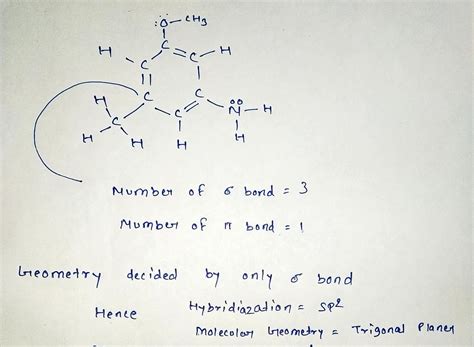 :Ö-CH3
H C C H
C
H C C N-H
C C
H H H H
Number of σ bond = 3
Number of π bond = 1
Geometry decided by only σ bond
Hence Hybridiazation = sp2
Molecolar Geometry = Trigonal Planer